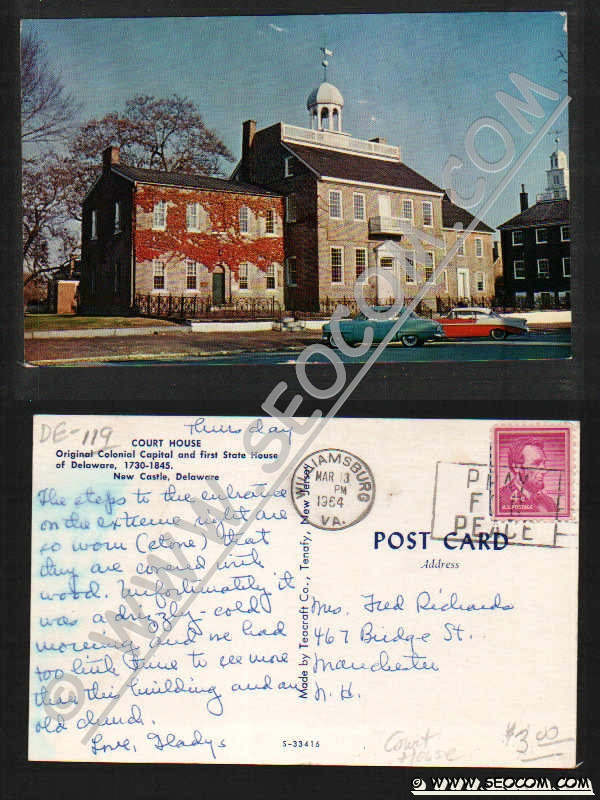 © WWW.SEOCOM.COM
DE-119
Thursday
COURT HOUSE
Original Colonial Capital and first State House
of Delaware, 1730-1845.
New Castle, Delaware
The steps to the entrance
on the extreme right are
so worn (stone) that
they are covered with
wood. Unfortunately it
was a drizzly-cold
morning and we had
too little time to see more
than this building and an
old church.
Love, Gladys
Made by Teacraft Co., Tenafly, New Jersey
S-33416
WILLIAMSBURG
MAR 13
PM
1964
VA.
PRAY
FOR
PEACE
4¢
U.S. POSTAGE
POST CARD
Address
Mrs. Fred Richards
467 Bridge St.
Manchester
N.H.
Court
House
$3.00
© WWW.SEOCOM.COM
© WWW.SEOCOM.COM